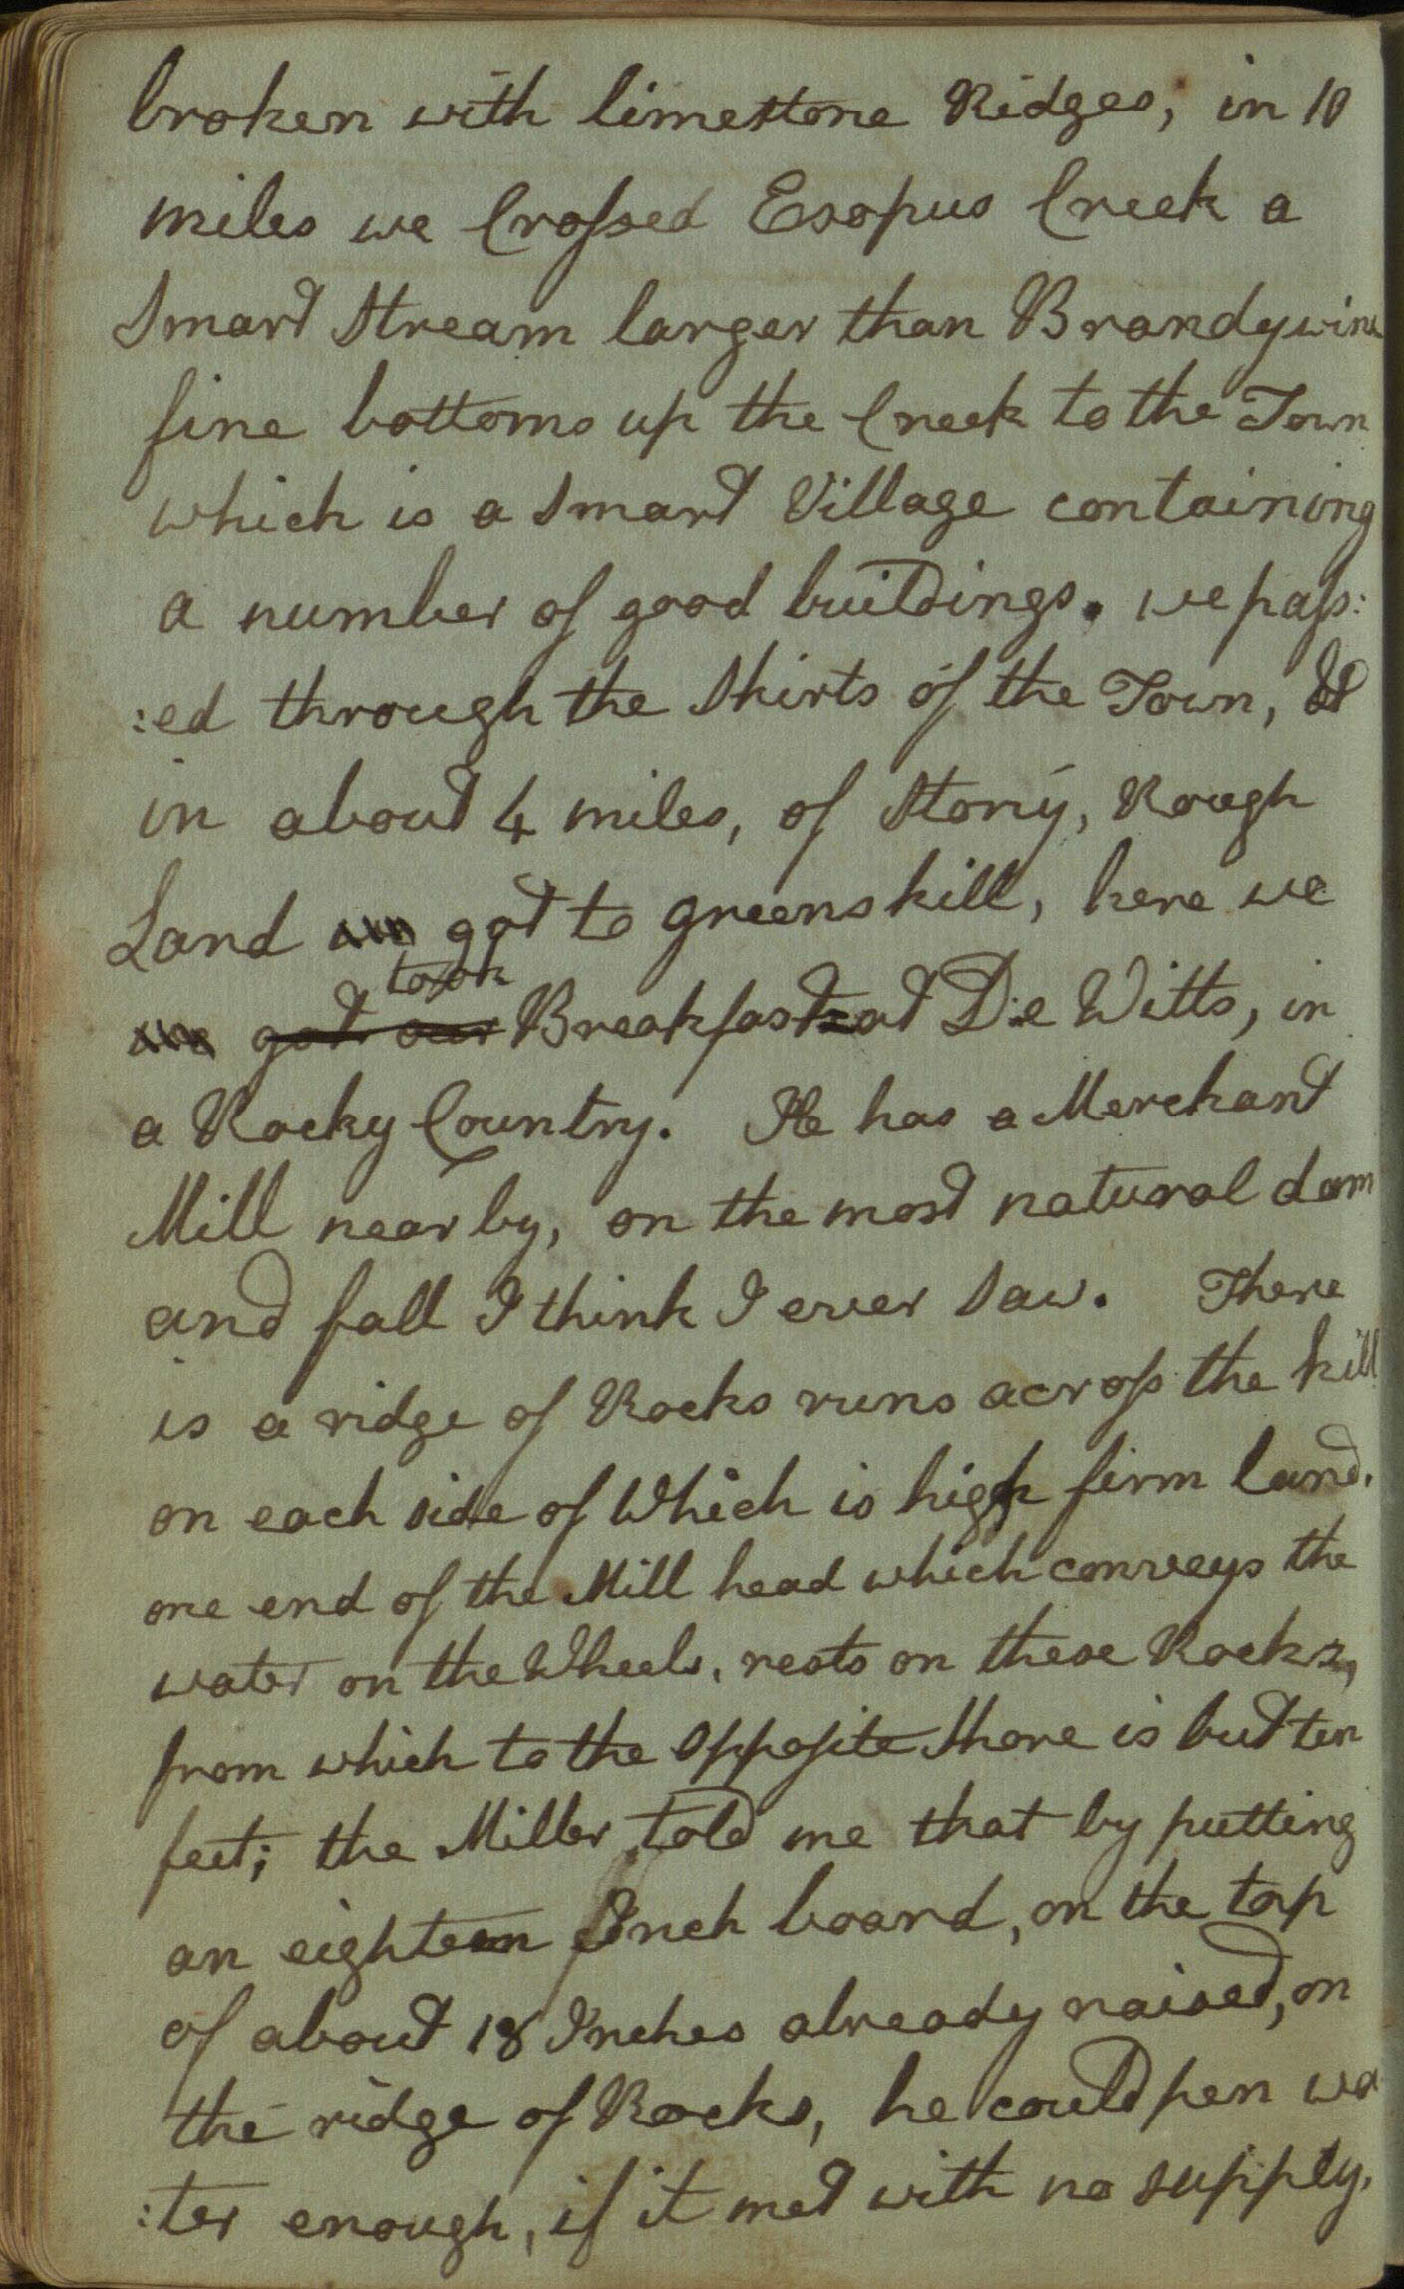 broken with limestone Ridges, in 10
miles we Crossed Esopus Creek a
Smart Stream larger than Brandywine
fine bottoms up the Creek to the Town
which is a Smart Village containing
a number of good buildings. we pass:
:ed through the Skirts of the Town, &
in about 4 miles, of Stony, Rough
Land got to greenskill, here we
took
got our Breakfast at De Witts, in
a Rocky Country. He has a Merchant
Mill near by, on the most natural dam
and fall I think I ever Saw. There
is a ridge of Rocks runs across the kill
on each side of Which is high firm land.
one end of the Mill head which conveys the
water on the Wheels, rests on these Rocks,
from which to the Opposite Shore is but ten
feet; the Miller told me that by putting
an eighteen Inch board, on the top
of about 18 Inches already raised, on
the ridge of Rocks, he could pen wa
:ter enough, if it met with no supply.